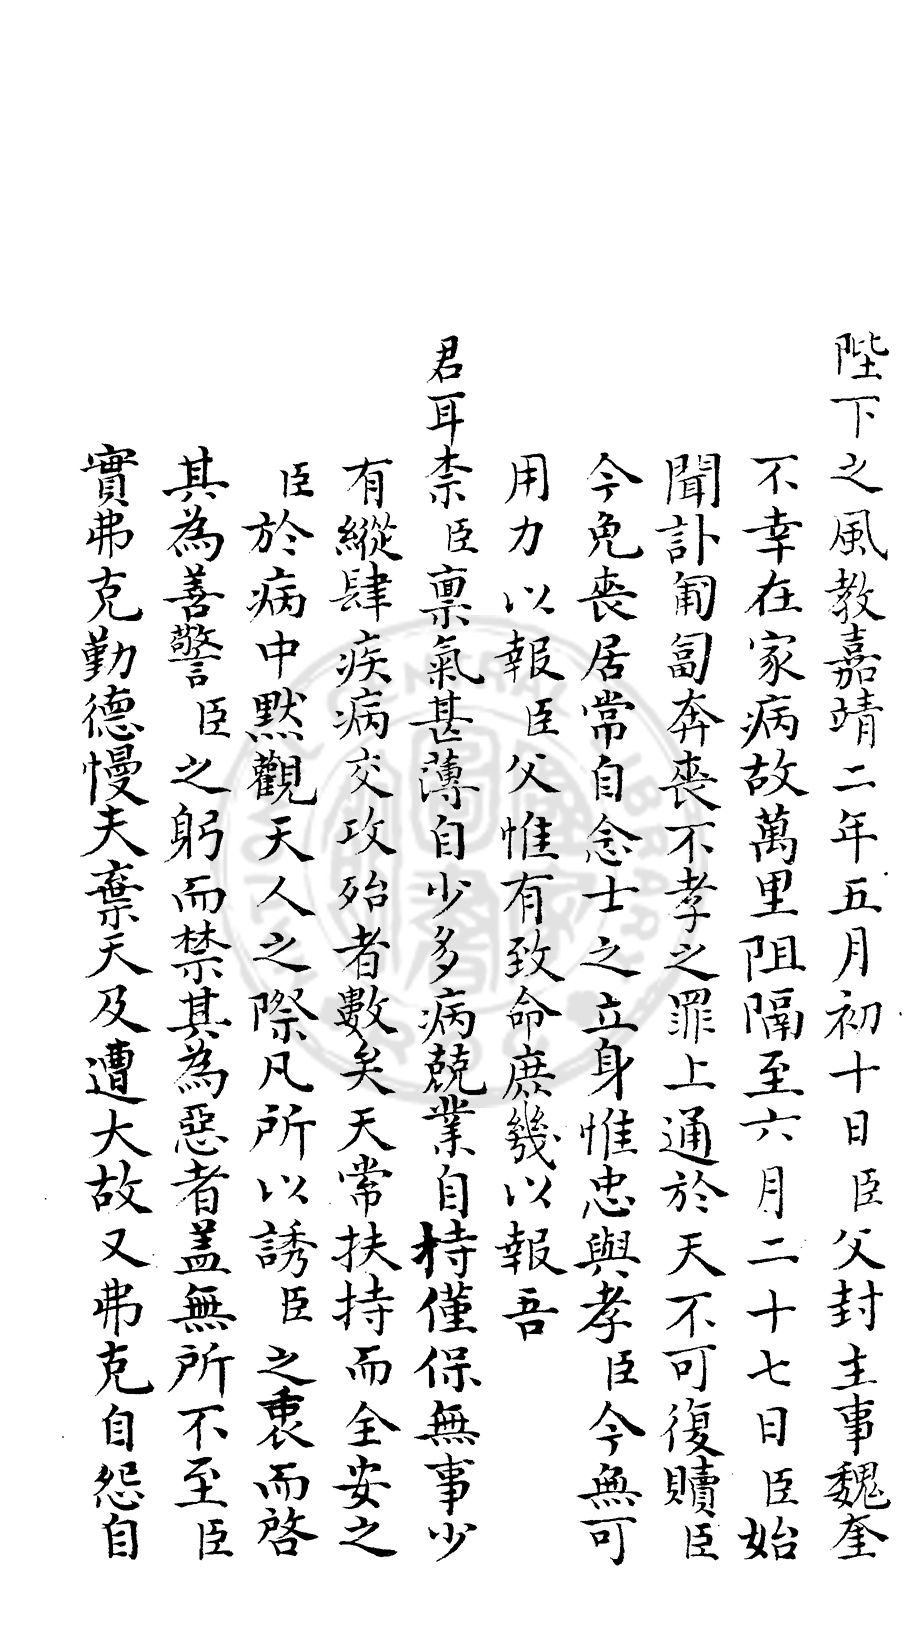 陛下之風教嘉靖二年五月初十日臣父封主事魏奎
不幸在家病故萬里阻隔至六月二十七日臣始
聞訃匍匐奔喪不孝之罪上通於天不可復贖臣
今免喪居常自念士之立身惟忠與孝臣今無可
用力以報臣父惟有致命庶幾以報吾
君耳柰臣禀氣甚薄自少多病兢業自持僅保無事少
有縱肆疾病交攻殆者數矣天常扶持而全安之
臣於病中默觀天人之際凡所以誘臣之衷而啓
其為善警臣之躬而禁其為惡者盖無所不至臣
實弗克勤德慢夫棄天及遭大故又弗克自怨自